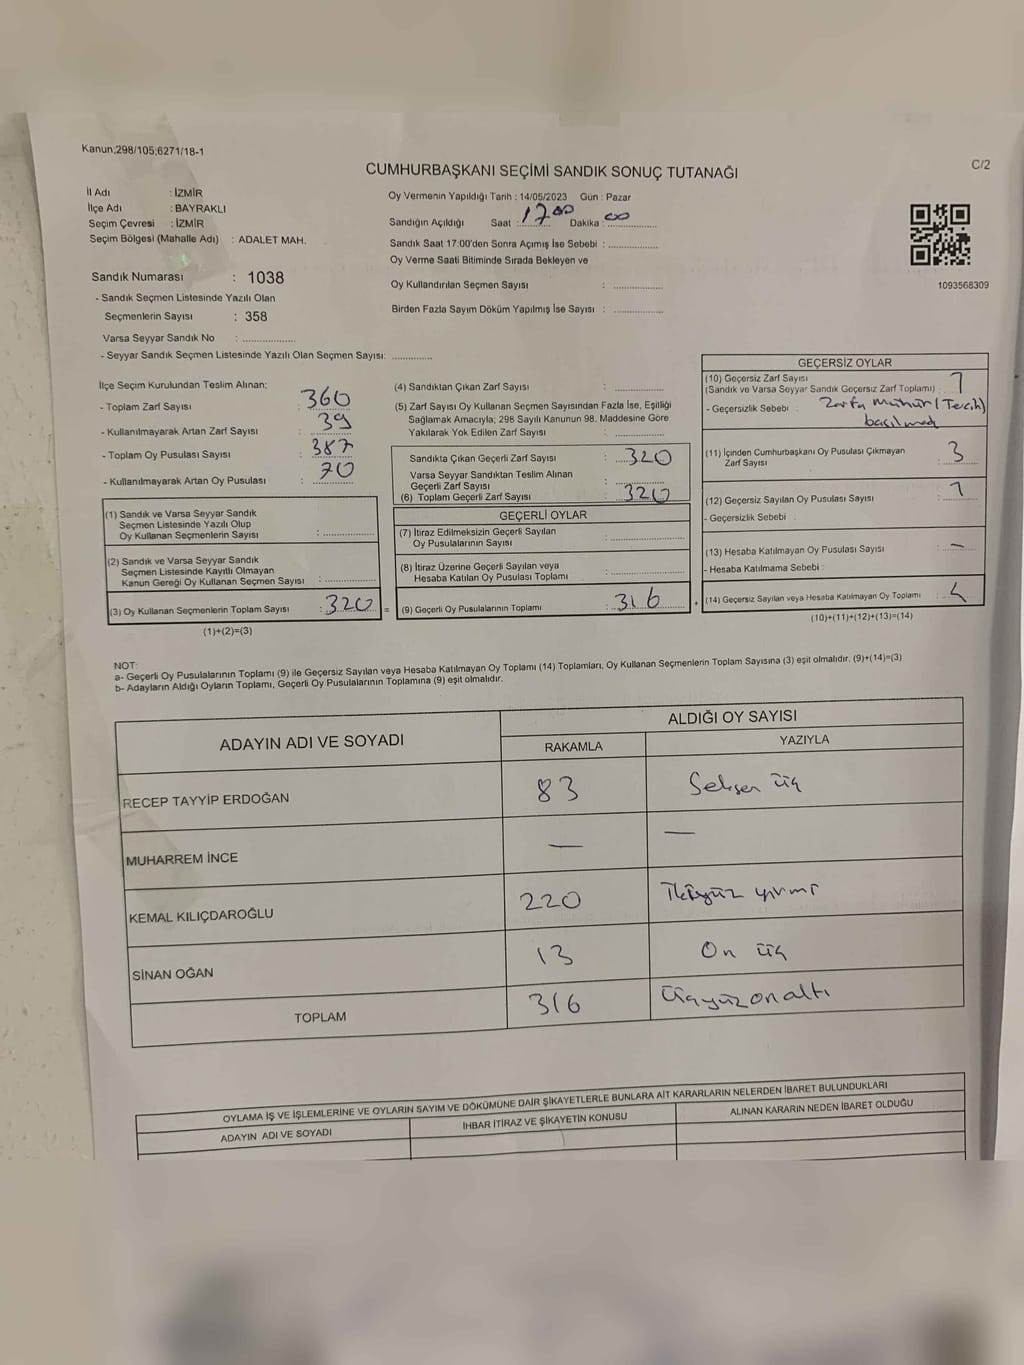 Kanun;298/105;6271/18-1
C/2
CUMHURBAŞKANI SEÇİMİ SANDIK SONUÇ TUTANAĞI
İl Adı : İZMİR
İlçe Adı : BAYRAKLI
Seçim Çevresi : İZMİR
Seçim Bölgesi (Mahalle Adı) : ADALET MAH.
Sandık Numarası : 1038
- Sandık Seçmen Listesinde Yazılı Olan
Seçmenlerin Sayısı : 358
Varsa Seyyar Sandık No : ..................
- Seyyar Sandık Seçmen Listesinde Yazılı Olan Seçmen Sayısı: .............
Oy Vermenin Yapıldığı Tarih : 14/05/2023 Gün : Pazar
Sandığın Açıldığı Saat : 17 00 Dakika : 00
Sandık Saat 17:00'den Sonra Açımış İse Sebebi : ................
Oy Verme Saati Bitiminde Sırada Bekleyen ve
Oy Kullandırılan Seçmen Sayısı : ................
Birden Fazla Sayım Döküm Yapılmış İse Sayısı : ................
1093568309
İlçe Seçim Kurulundan Teslim Alınan;
- Toplam Zarf Sayısı : 360
- Kullanılmayarak Artan Zarf Sayısı : 39
- Toplam Oy Pusulası Sayısı : 387
- Kullanılmayarak Artan Oy Pusulası : 70
(1) Sandık ve Varsa Seyyar Sandık
Seçmen Listesinde Yazılı Olup
Oy Kullanan Seçmenlerin Sayısı : ................
(2) Sandık ve Varsa Seyyar Sandık
Seçmen Listesinde Kayıtlı Olmayan
Kanun Gereği Oy Kullanan Seçmen Sayısı : ................
(3) Oy Kullanan Seçmenlerin Toplam Sayısı : 320 =
(1)+(2)=(3)
(4) Sandıktan Çıkan Zarf Sayısı : ................
(5) Zarf Sayısı Oy Kullanan Seçmen Sayısından Fazla İse, Eşitliği
Sağlamak Amacıyla; 298 Sayılı Kanunun 98. Maddesine Göre
Yakılarak Yok Edilen Zarf Sayısı : ................
Sandıkta Çıkan Geçerli Zarf Sayısı : 320
Varsa Seyyar Sandıktan Teslim Alınan
Geçerli Zarf Sayısı : ................
(6) Toplam Geçerli Zarf Sayısı : 320
GEÇERLİ OYLAR
(7) İtiraz Edilmeksizin Geçerli Sayılan
Oy Pusulalarının Sayısı : ................
(8) İtiraz Üzerine Geçerli Sayılan veya
Hesaba Katılan Oy Pusulası Toplamı : ................
(9) Geçerli Oy Pusulalarının Toplamı : 316 +
GEÇERSİZ OYLAR
(10) Geçersiz Zarf Sayısı
(Sandık ve Varsa Seyyar Sandık Geçersiz Zarf Toplamı) : 1
- Geçersizlik Sebebi : Zarfa Mühür (Tercih)
basılmadı
(11) İçinden Cumhurbaşkanı Oy Pusulası Çıkmayan
Zarf Sayısı : 3
(12) Geçersiz Sayılan Oy Pusulası Sayısı : 1
- Geçersizlik Sebebi :
(13) Hesaba Katılmayan Oy Pusulası Sayısı : —
- Hesaba Katılmama Sebebi :
(14) Geçersiz Sayılan veya Hesaba Katılmayan Oy Toplamı :
(10)+(11)+(12)+(13)=(14)
NOT:
a- Geçerli Oy Pusulalarının Toplamı (9) ile Geçersiz Sayılan veya Hesaba Katılmayan Oy Toplamı (14) Toplamları, Oy Kullanan Seçmenlerin Toplam Sayısına (3) eşit olmalıdır. (9)+(14)=(3)
b- Adayların Aldığı Oyların Toplamı, Geçerli Oy Pusulalarının Toplamına (9) eşit olmalıdır.
ADAYIN ADI VE SOYADI
ALDIĞI OY SAYISI
RAKAMLA YAZIYLA
RECEP TAYYİP ERDOĞAN 83 Seksen üç
MUHARREM İNCE — —
KEMAL KILIÇDAROĞLU 220 İkiyüz yirmi
SİNAN OĞAN 13 On üç
TOPLAM 316 Üçyüzonaltı
OYLAMA İŞ VE İŞLEMLERİNE VE OYLARIN SAYIM VE DÖKÜMÜNE DAİR ŞİKAYETLERLE BUNLARA AİT KARARLARIN NELERDEN İBARET BULUNDUKLARI
ADAYIN ADI VE SOYADI İHBAR İTİRAZ VE ŞİKAYETİN KONUSU ALINAN KARARIN NEDEN İBARET OLDUĞU